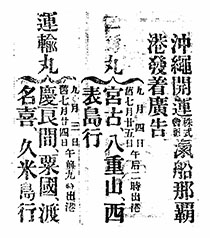 沖繩開運株式會社滊船那覇
港發着廣告
九月四日午后二時出港
舊七月廿五日
宮古、八重山、西
表島行
運輸丸
九月三日午前九時出港
舊七月廿四日
慶良間、粟國、渡
名喜、久米島行